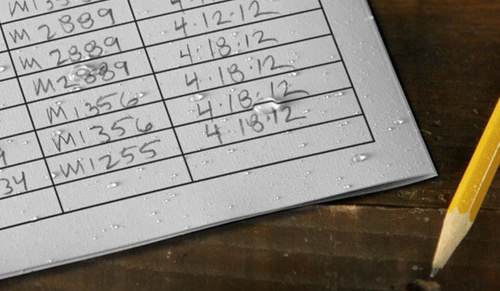 M 2889
M 2889 4·12·12
M2889 4·18·12
M1356 4·18·12
9 M1356 4·18·12
34 M1255 4·18·12